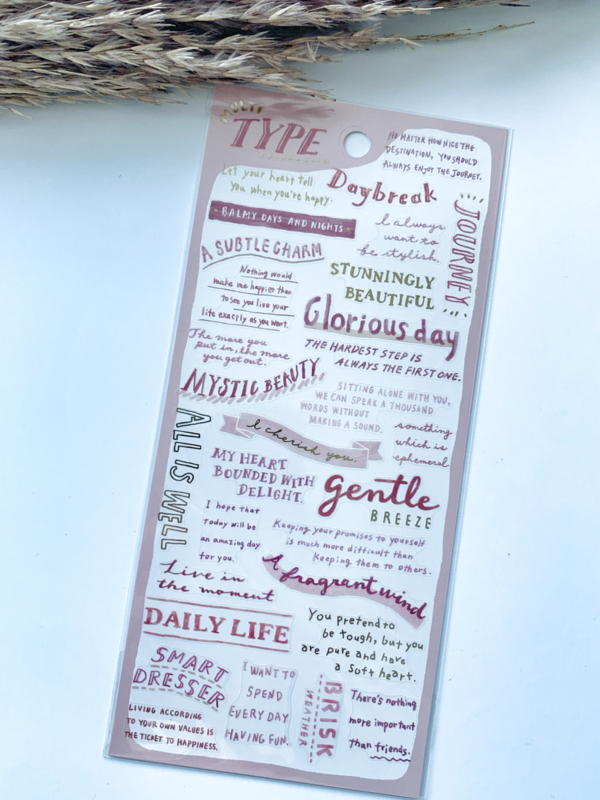 MULTI
TYPE
NO MATTER HOW NICE THE
DESTINATION, YOU SHOULD
ALWAYS ENJOY THE JOURNEY.
Let your heart tell
you when you're happy.
Daybreak
JOURNEY
BALMY DAYS AND NIGHTS
I always
want to
be stylish.
A SUBTLE CHARM
STUNNINGLY
BEAUTIFUL
Nothing would
make me happier than
to see you live your
life exactly as you want.
Glorious day
The more you
put in, the more
you get out.
THE HARDEST STEP IS
ALWAYS THE FIRST ONE.
MYSTIC BEAUTY
SITTING ALONE WITH YOU,
WE CAN SPEAK A THOUSAND
WORDS WITHOUT
MAKING A SOUND.
something
which is
ephemeral
ALL IS WELL
I cherish you.
MY HEART
BOUNDED WITH
DELIGHT.
Gentle
BREEZE
I hope that
Today will be
an amazing day
for you.
Keeping your promises to yourself
is much more difficult than
keeping them to others.
Live in
the moment
A fragrant wind
DAILY LIFE
You pretend to
be tough, but you
are pure and have
a soft heart.
SMART
DRESSER
I WANT TO
SPEND
EVERY DAY
HAVING FUN.
BRISK
WEATHER
There's nothing
more important
than friends.
LIVING ACCORDING
TO YOUR OWN VALUES IS
THE TICKET TO HAPPINESS.